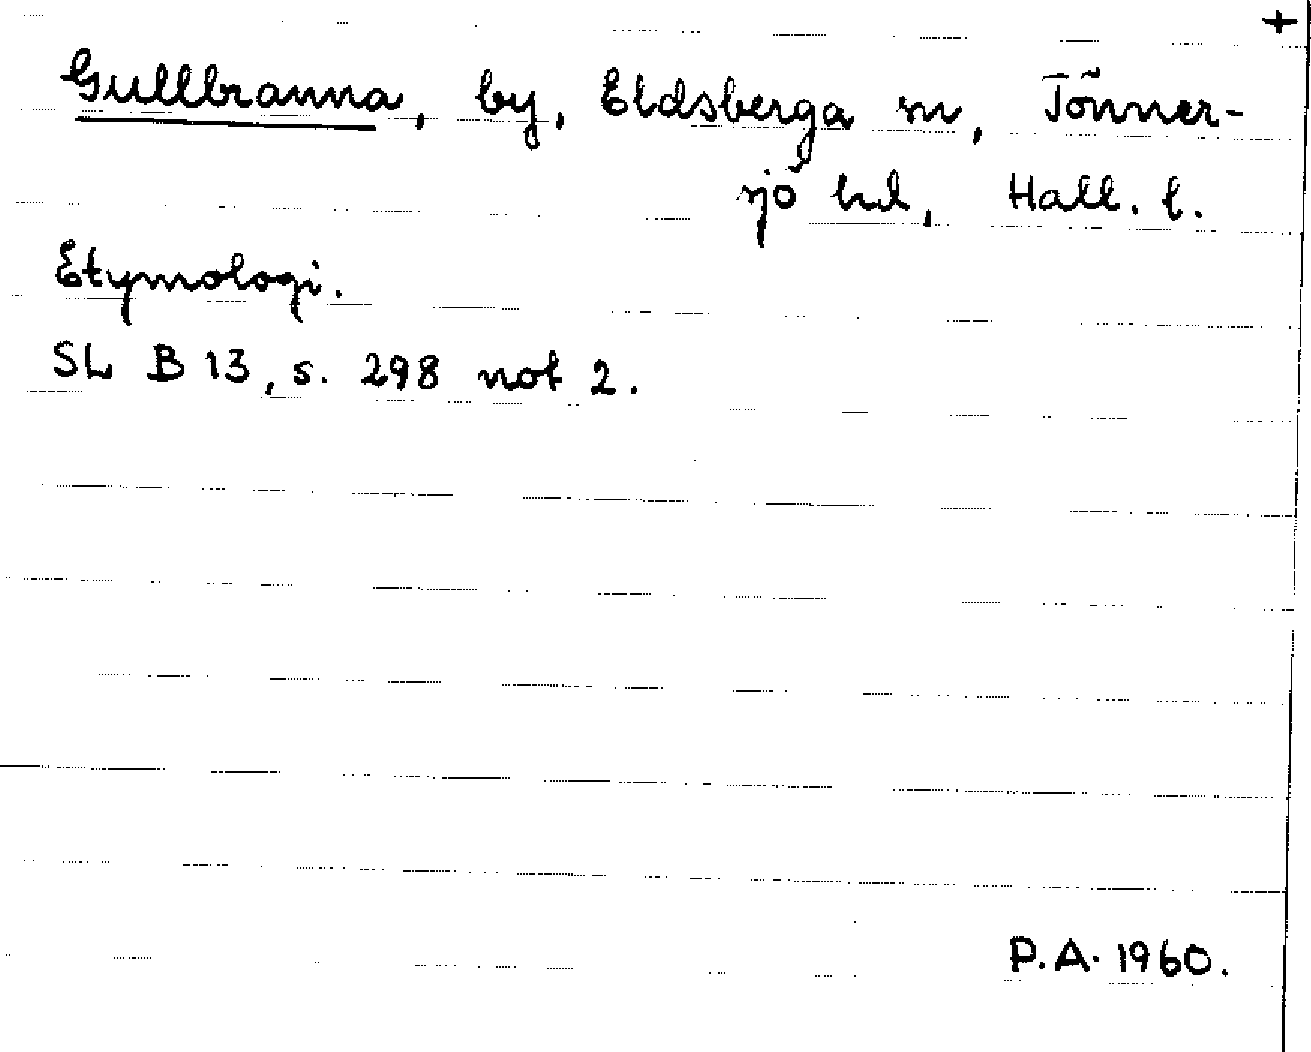 +
Gullbranna, by, Eldsberga sn, Tönner-
sjö hd, Hall. l.
Etymologi.
SL B 13, s. 298 not 2.
P.A. 1960.